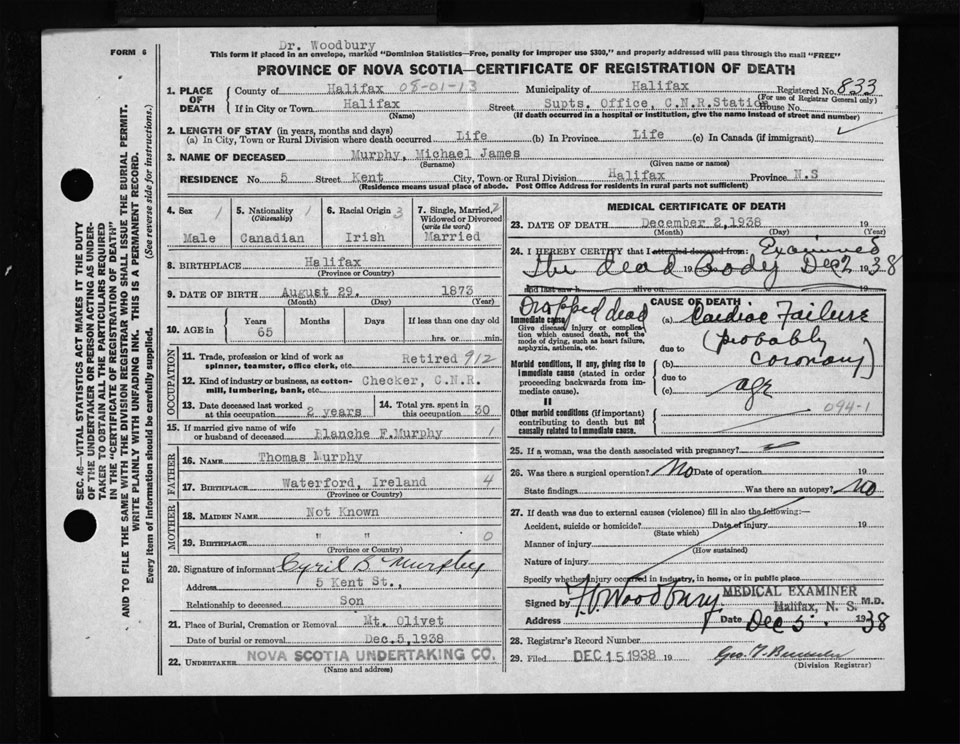 Dr. Woodbury
FORM 6
This form if placed in an envelope, marked "Dominion Statistics—Free, penalty for improper use $300," and properly addressed will pass through the mail "FREE"
PROVINCE OF NOVA SCOTIA—CERTIFICATE OF REGISTRATION OF DEATH
SEC. 46—VITAL STATISTICS ACT MAKES IT THE DUTY
OF THE UNDERTAKER OR PERSON ACTING AS UNDER-
TAKER TO OBTAIN ALL THE PARTICULARS REQUIRED
IN THE "CERTIFICATE OF REGISTRATION OF DEATH"
AND TO FILE THE SAME WITH THE DIVISION REGISTRAR WHO SHALL ISSUE THE BURIAL PERMIT.
WRITE PLAINLY WITH UNFADING INK. THIS IS A PERMANENT RECORD.
Every item of information should be carefully supplied. (See reverse side for instructions.)
1. PLACE OF DEATH
County of Halifax 08-01-13 Municipality of Halifax Registered No. 833
(For use of Registrar General only)
If in City or Town Halifax Street Supts. Office, C.N.R.Station House No.
(Name) (If death occurred in a hospital or institution, give the name instead of street and number)
2. LENGTH OF STAY (in years, months and days)
(a) In City, Town or Rural Division where death occurred Life (b) In Province Life (c) In Canada (if immigrant)
3. NAME OF DECEASED Murphy, Michael James
(Surname) (Given name or names)
RESIDENCE No. 5 Street Kent City, Town or Rural Division Halifax Province N.S
(Residence means usual place of abode. Post Office Address for residents in rural parts not sufficient)
4. Sex 1 Male
5. Nationality 1 (Citizenship) Canadian
6. Racial Origin 3 Irish
7. Single, Married, 2 Widowed or Divorced (write the word) Married
8. BIRTHPLACE Halifax
(Province or Country)
9. DATE OF BIRTH August 29. 1873
(Month) (Day) (Year)
10. AGE in Years 65 Months Days If less than one day old
hrs. or min.
OCCUPATION
11. Trade, profession or kind of work as spinner, teamster, office clerk, etc. Retired 912
12. Kind of industry or business, as cotton-mill, lumbering, bank, etc. Checker, C.N.R.
13. Date deceased last worked at this occupation 2 years
14. Total yrs. spent in this occupation 30
15. If married give name of wife or husband of deceased Blanche F.Murphy 1
FATHER
16. NAME Thomas Murphy
17. BIRTHPLACE Waterford, Ireland 4
(Province or Country)
MOTHER
18. MAIDEN NAME Not Known
19. BIRTHPLACE " " 0
(Province or Country)
20. Signature of informant Cyril B Murphy
Address 5 Kent St.,
Relationship to deceased Son
21. Place of Burial, Cremation or Removal Mt. Olivet
Date of burial or removal Dec.5,1938
22. UNDERTAKER NOVA SCOTIA UNDERTAKING CO.
(Name and address)
MEDICAL CERTIFICATE OF DEATH
23. DATE OF DEATH December 2,1938 19
(Month) (Day) (Year)
24. I HEREBY CERTIFY that I attended deceased from: Examined
The dead 19 Body Dec 2 1938
and last saw h alive on 19
Dropped dead
CAUSE OF DEATH
Immediate cause (a) Cardiac Failure
Give disease, injury or complication which caused death, not the mode of dying, such as heart failure, asphyxia, asthenia, etc.
due to (probably
Morbid conditions, if any, giving rise to immediate cause (stated in order proceeding backwards from immediate cause).
(b) coronary)
due to
(c) age
II
Other morbid conditions (if important) contributing to death but not causally related to immediate cause.
094-1
25. If a woman, was the death associated with pregnancy?
26. Was there a surgical operation? No Date of operation 19
State findings Was there an autopsy? No
27. If death was due to external causes (violence) fill in also the following:—
Accident, suicide or homicide? Date of injury 19
(State which)
Manner of injury
(How sustained)
Nature of injury
Specify whether injury occurred in industry, in home, or in public place
Signed by F.V. Woodbury M.D.
MEDICAL EXAMINER
Halifax, N. S.
Address Date Dec 5. 1938
28. Registrar's Record Number
29. Filed DEC 15 1938 19
(Division Registrar)